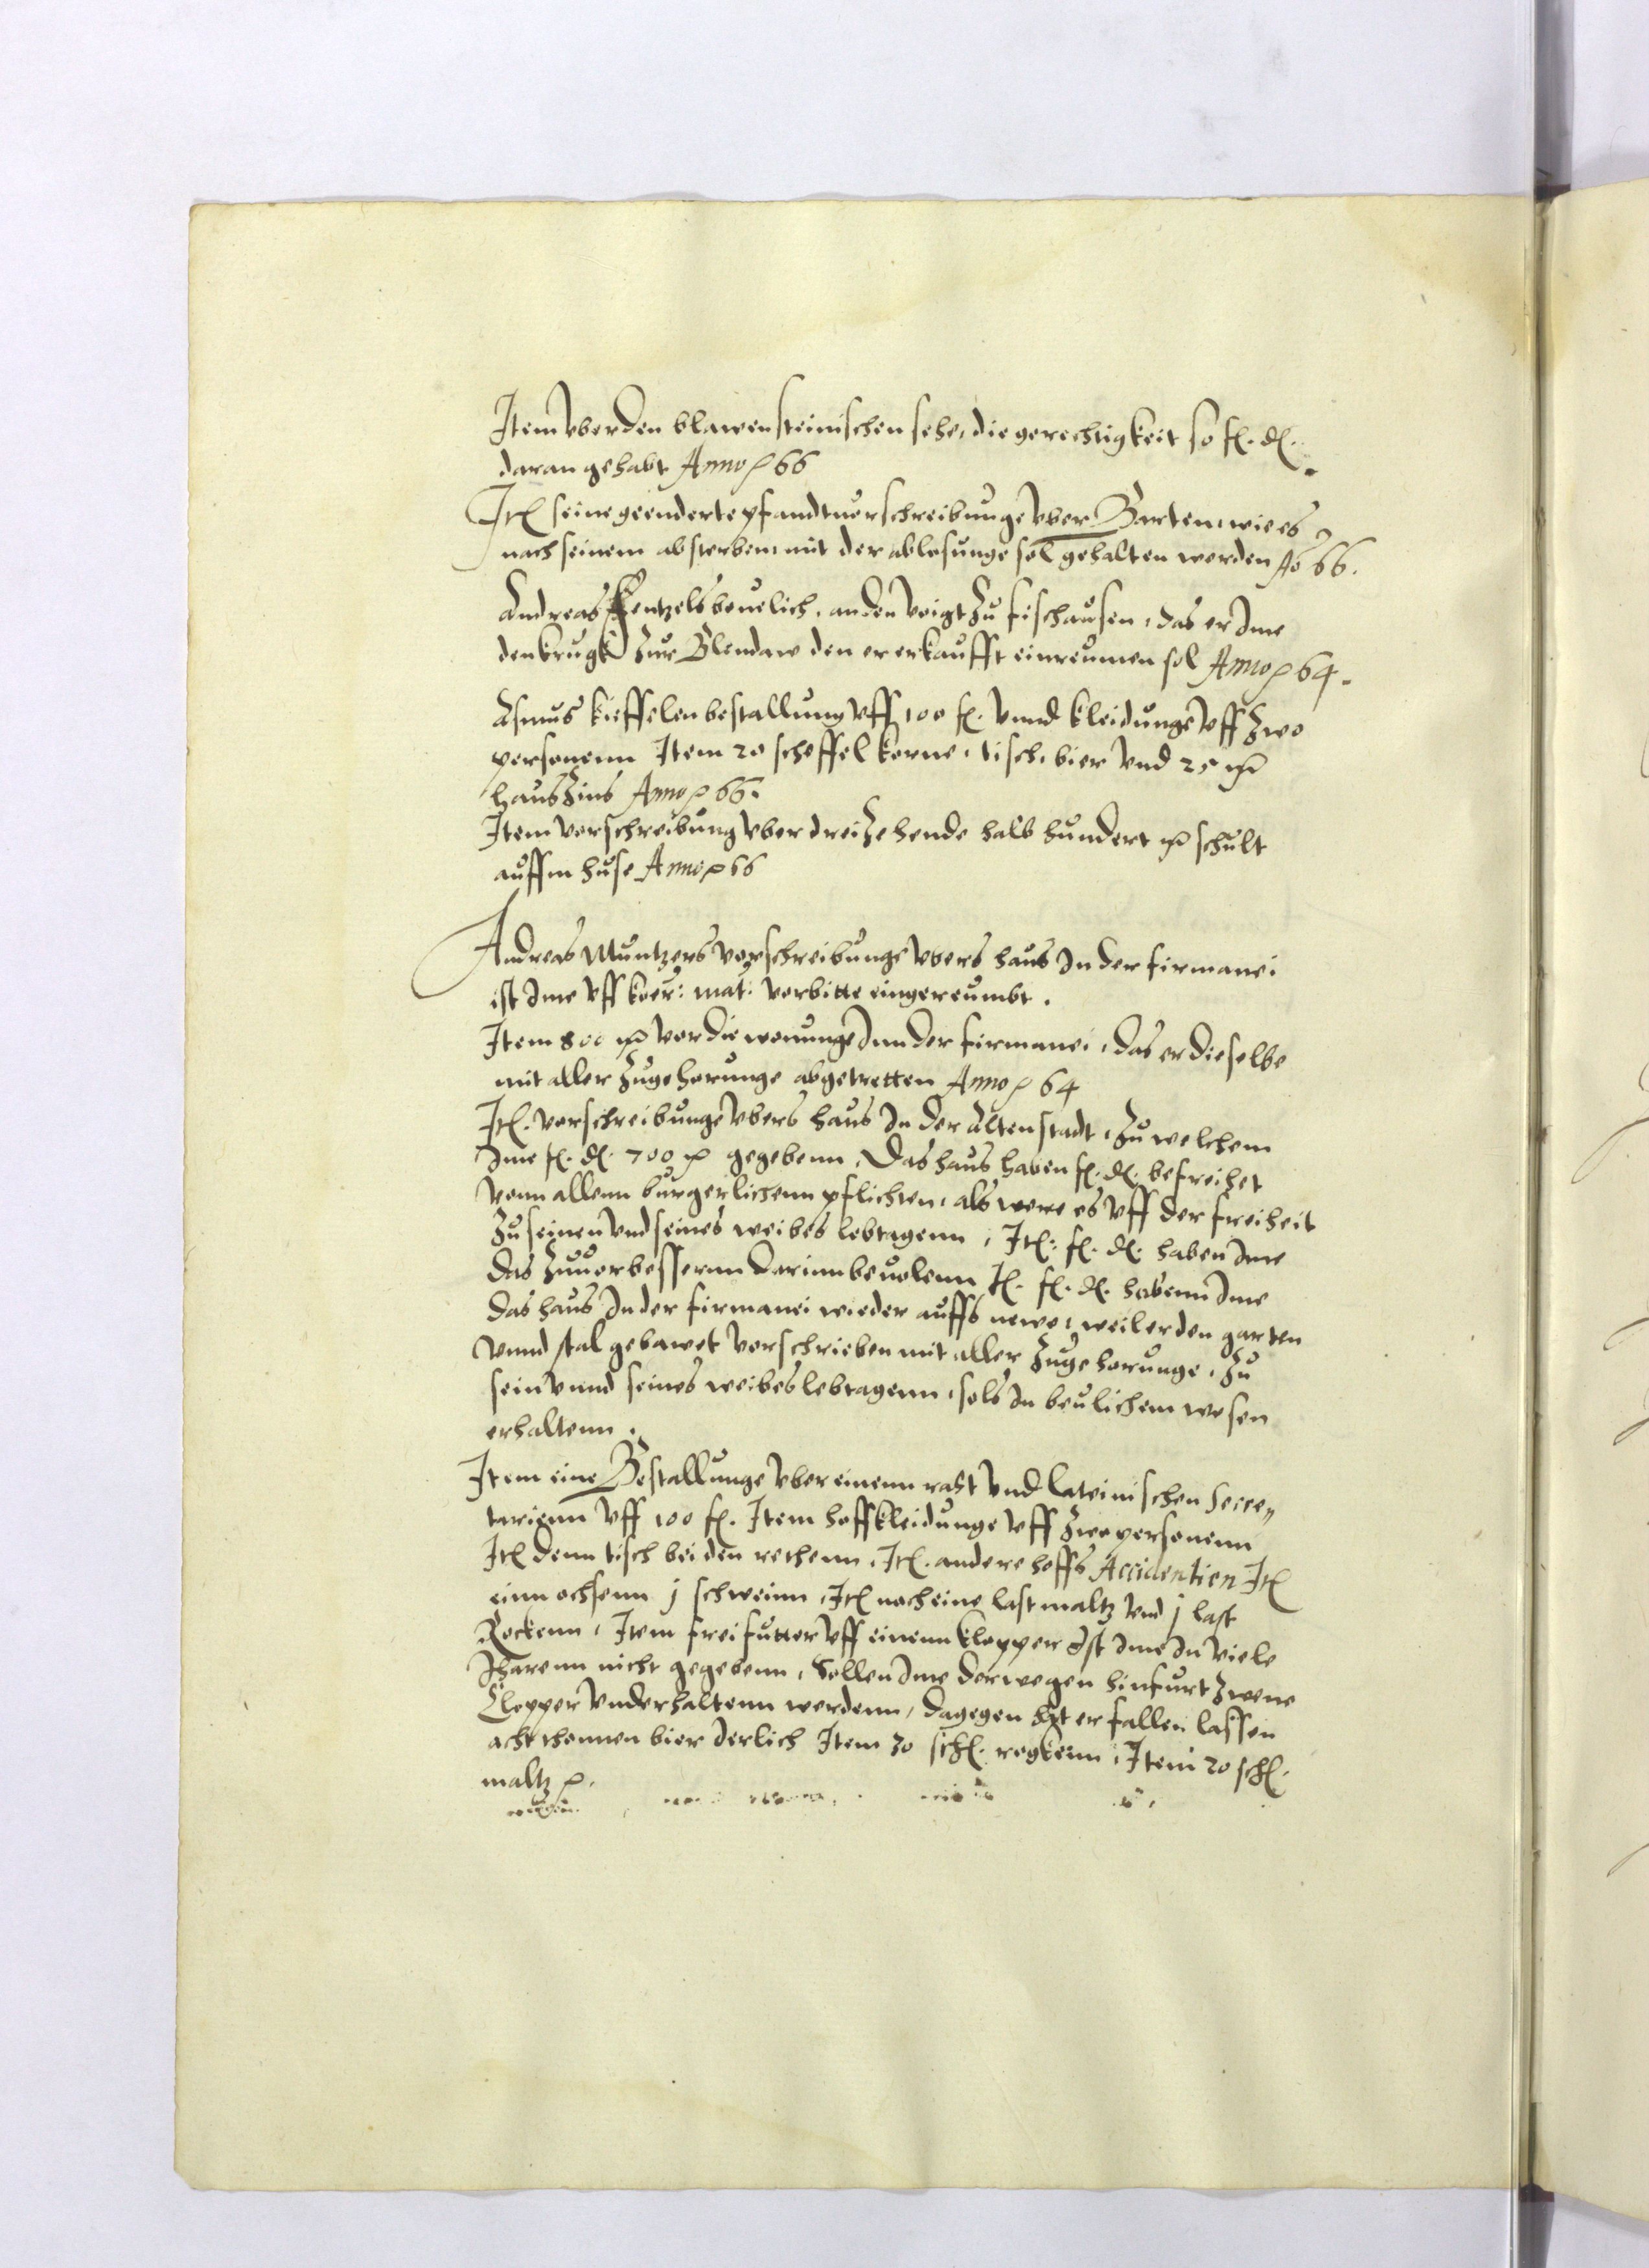 Item vber den blawensteinischen sehe, die gerechtigkeit so f. d.
daran gehabt Anno p 66
It seine geenderte pfandtuorschreibunge vber Barten, wie es
nach seinem absterben, mit der ablosunge sol gehalten werden Ao 66.
Andreas Hentzels beuelich, an den Voigt zu fischausen, das er Ime
den krugk zur Blendaw den er erkaufft einreumen sol Anno p 64.
Asmus kieffelen bestallung vff 100 f. vnnd kleidunge vff zwo
personenn Item 20 scheffel korne, tisch, bier vnd 25 m
hauszins Anno p 66.
Item vorschreibung vber dreizehende halb hundert m schult
auffm huse Anno p 66
Andreas Muntzers vorschreibunge vbers haus In der firmanei
ist Ime vff koe: mat: vorbitte eingereumbt.
Item 800 m vor die wonunge Inn der firmanei, das er dieselbe
mit aller zugehorunge abgetretten Anno p 64
It. vorschreibunge vbers haus In der altenstadt, zu welchem
Ime f. d. 700 m gegebenn, Das haus haben f. d. befreihet
vonn allenn burgerlichenn pflichten, als were es vff der freiheit
zu seinen vnd seines weibes lebtagenn, It: f. d. haben Ime
das zuuorbessernn darinn beuolenn It. f. d. habenn Ime
das haus In der firmanei wieder auffs newe, weil er den garten
vnnd stal gebawet vorschrieben mit aller zugehorunge, zu
sein vnnd seines weibes lebtagenn, sols In beulichem wesen
erhaltenn.
Item eine Bestallunge vber einenn raht vnd lateinischen Secre,,
tarienn vff 100 f. Item hoffkleidunge vff zwo personenn
It denn tisch bei den rethenn, It. andere hoffs Accidentien It
einn ochsenn j schweinn, It noch eine last maltz vnd j last
Rockenn, Item frei futter vff einenn klopper Ist Ime In viele
Jharenn nicht gegebenn, Sollen Ime derwegen hinfurt zwene
Clopper vnderhaltenn werdenn, dagegen hat er fallen lassen
acht thonnen bier Jerlich Item 30 schl. rogkenn, Item 20 schl.
maltz p.